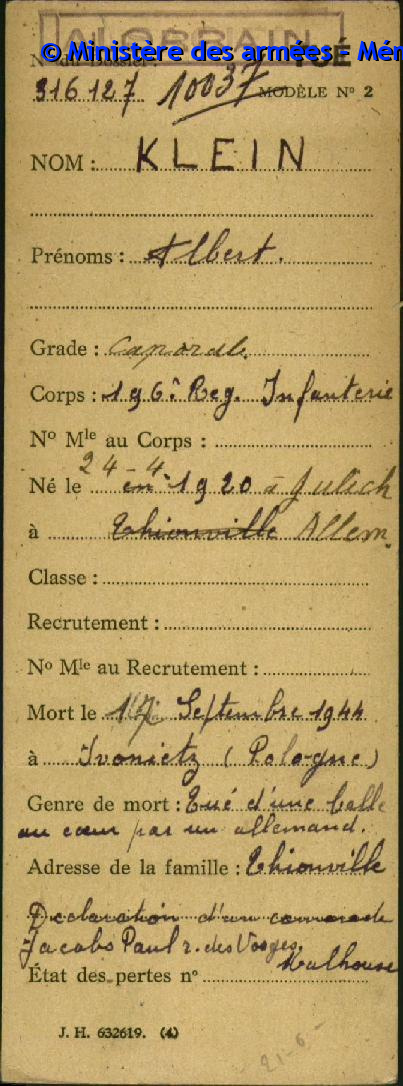 ALSORRAIN
© Ministère des armées - Mém
N° du Dossier : TUÉ
316127 10037 MODÈLE N° 2
NOM : KLEIN
Prénoms : Albert.
Grade : Caporal
Corps : 196e Reg. Infanterie
N° Mle au Corps :
24-4
Né le en 1920 à Julich
à Thionville Allem.
Classe :
Recrutement :
N° Mle au Recrutement :
Mort le 17 Septembre 1944
à Ivonietz (Pologne)
Genre de mort : Tué d'une balle
au cœur par un allemand.
Adresse de la famille : Thionville
Declaration d'un camarade
Jacobs Paul r. des Vosges
Mulhouse
État des pertes n°
J. H. 632619. (4)
21-6-